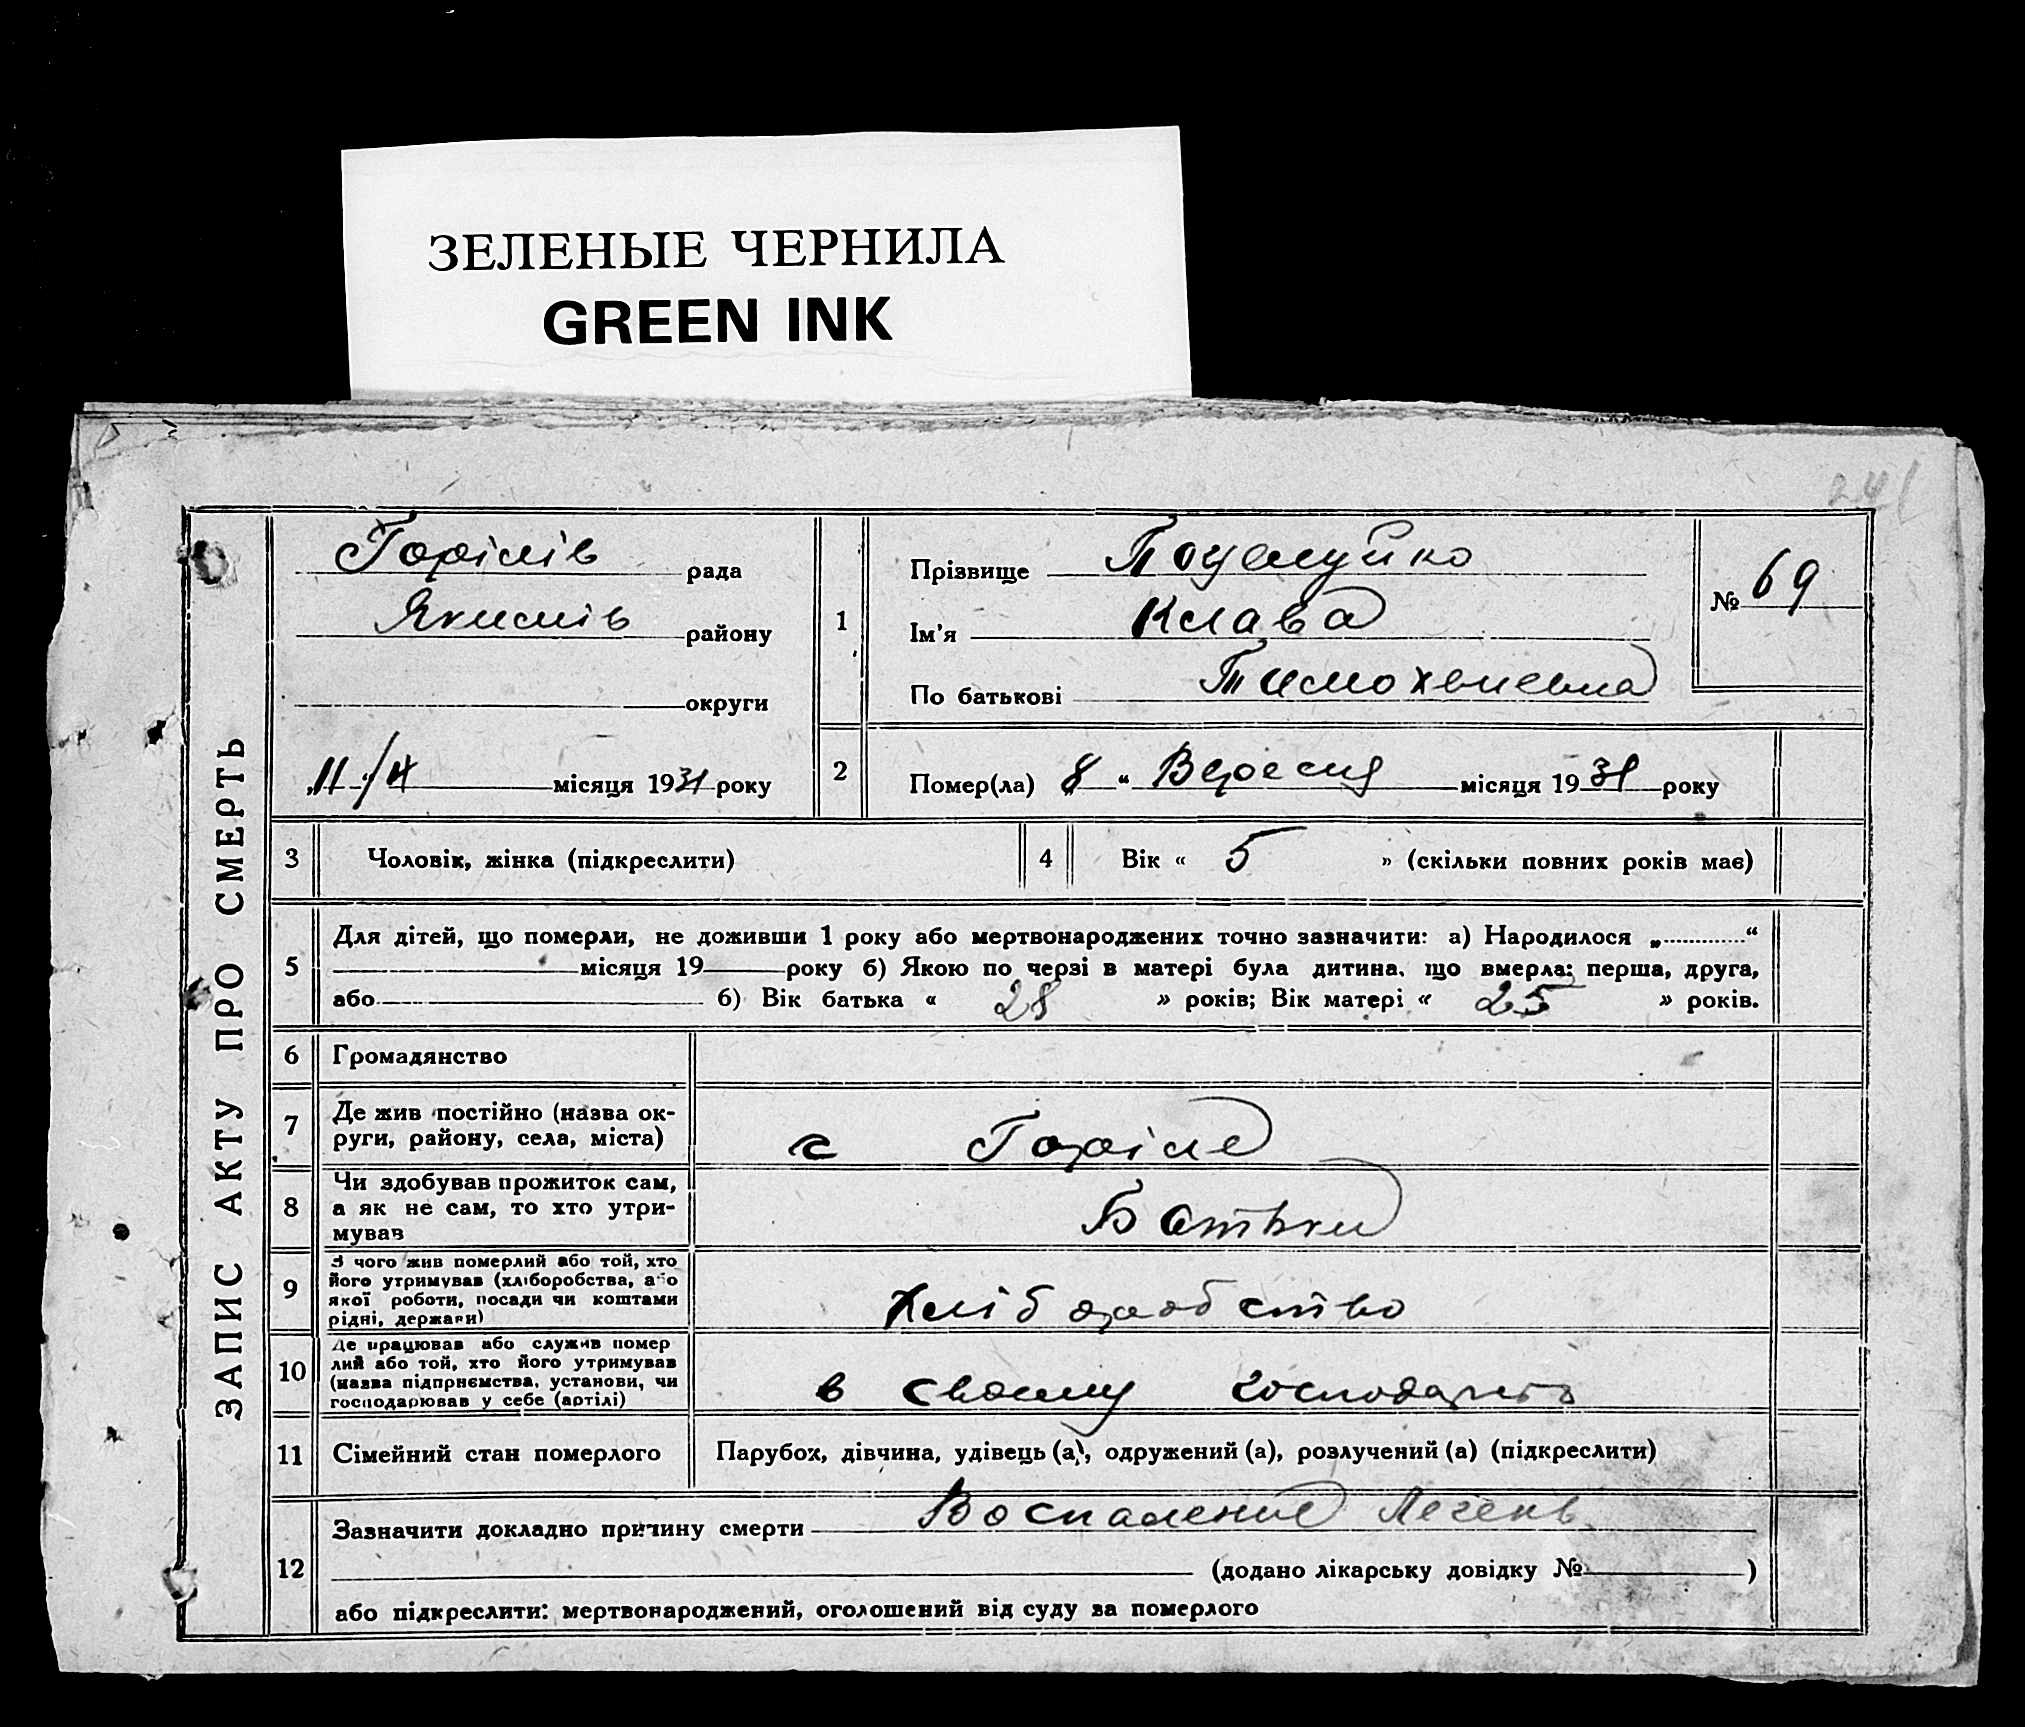 ЗЕЛЕНЫЕ ЧЕРНИЛА
GREEN INK
241
ЗАПИС АКТУ ПРО СМЕРТЬ
Горілів рада
Якимів району
округи
„11 “/ місяця 1931 року
1
Прізвище
Ім'я Клава
По батькові
№ 69
2
Помер(ла) „8 “ Вересня місяця 1931 року
3 Чоловік, жінка (підкреслити)
4 Вік « 5 » (скільки повних років має)
5
Для дітей, що померли, не доживши 1 року або мертвонароджених точно зазначити: а) Народилося „ “
місяця 19 року б) Якою по черзі в матері була дитина, що вмерла: перша, друга,
або б) Вік батька « 28 » років; Вік матері « 25 » років.
6 Громадянство
7 Де жив постійно (назва ок-
руги, району, села, міста)
с Горіле
8 Чи здобував прожиток сам,
а як не сам, то хто утри-
мував
Батьки
9 З чого жив померлий або той, хто
його утримував (хліборобства, або
якої роботи, посади чи коштами
рідні, держави)
Хліборобство
10 Де працював або служив помер
лий або той, хто його утримував
(назва підприємства, установи, чи
господарював у себе (артілі)
в своєму
11 Сімейний стан померлого
Парубох, дівчина, удівець (а), одружений (а), розлучений (а) (підкреслити)
12
Зазначити докладно причину смерти Воспаление Легень
(додано лікарську довідку № )
або підкреслити: мертвонароджений, оголошений від суду за померлого